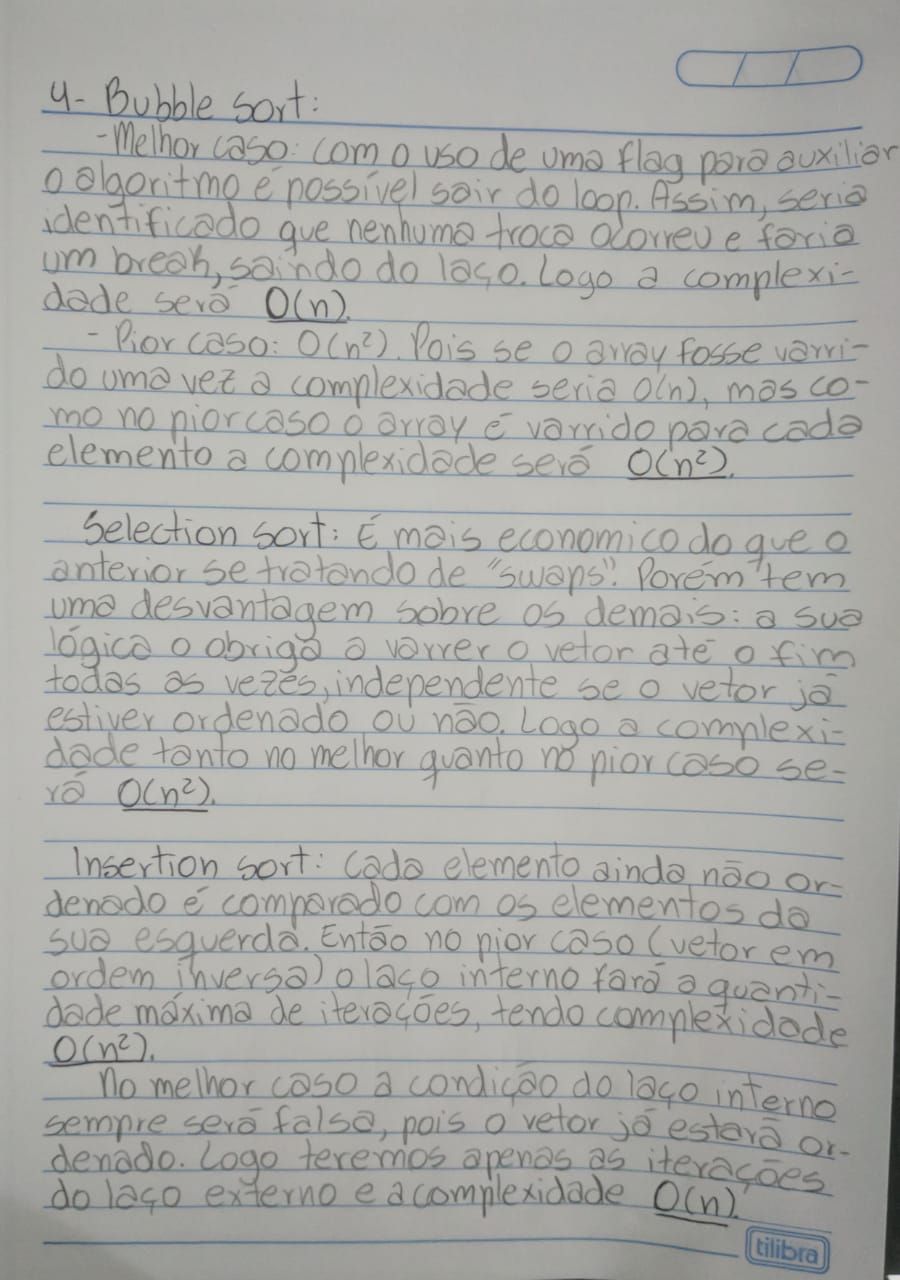 4- Bubble sort:
- Melhor caso: com o uso de uma flag para auxiliar
o algoritmo é possível sair do loop. Assim, seria
identificado que nenhuma troca ocorreu e faria
um break, saindo do laço. Logo a complexi-
dade será O(n).
- Pior caso: O(n²). Pois se o array fosse varri-
do uma vez a complexidade seria O(n), mas co-
mo no pior caso o array é varrido para cada
elemento a complexidade será O(n²).
Selection sort: É mais economico do que o
anterior se tratando de "swaps". Porém tem
uma desvantagem sobre os demais: a sua
lógica o obriga a varrer o vetor até o fim
todas as vezes, independente se o vetor já
estiver ordenado ou não. Logo a complexi-
dade tanto no melhor quanto no pior caso se-
rá O(n²).
Insertion sort: Cada elemento ainda não or-
denado é comparado com os elementos da
sua esquerda. Então no pior caso (vetor em
ordem inversa) o laço interno fará a quanti-
dade máxima de iterações, tendo complexidade
O(n²).
No melhor caso a condição do laço interno
sempre será falsa, pois o vetor já estará or-
denado. Logo teremos apenas as iterações
do laço externo e a complexidade O(n).
tilibra